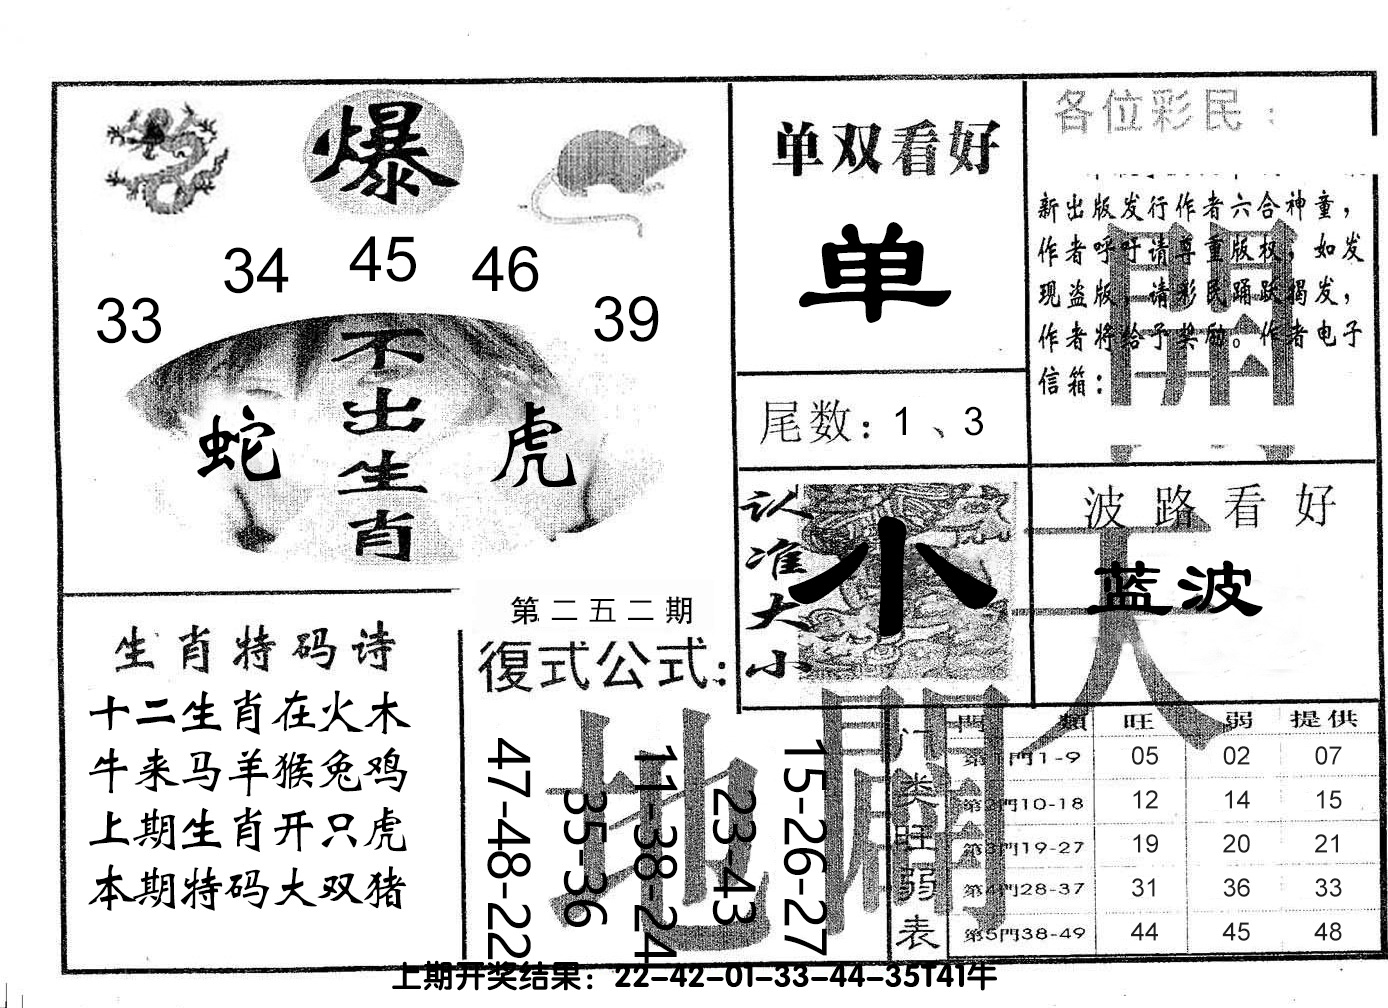 爆
33
34
45
46
39
不出生肖
蛇
虎
单双看好
单
尾数：1、3
各位彩民：
新出版发行作者六合神童，
作者呼吁请尊重版权，如发
现盗版，请彩民踊跃揭发，
作者将给予奖励。作者电子
信箱：
開
认准大小
小
波路看好
蓝波
天
生肖特码诗
十二生肖在火木
牛来马羊猴兔鸡
上期生肖开只虎
本期特码大双猪
第二五二期
復式公式：
47-48-22
35-36
11-38-24
23-43
15-26-27
地
門类旺弱表
門類 旺 弱 提供
第1門1-9 05 02 07
第2門10-18 12 14 15
第3門19-27 19 20 21
第4門28-37 31 36 33
第5門38-49 44 45 48
上期开奖结果：22-42-01-33-44-35T41牛